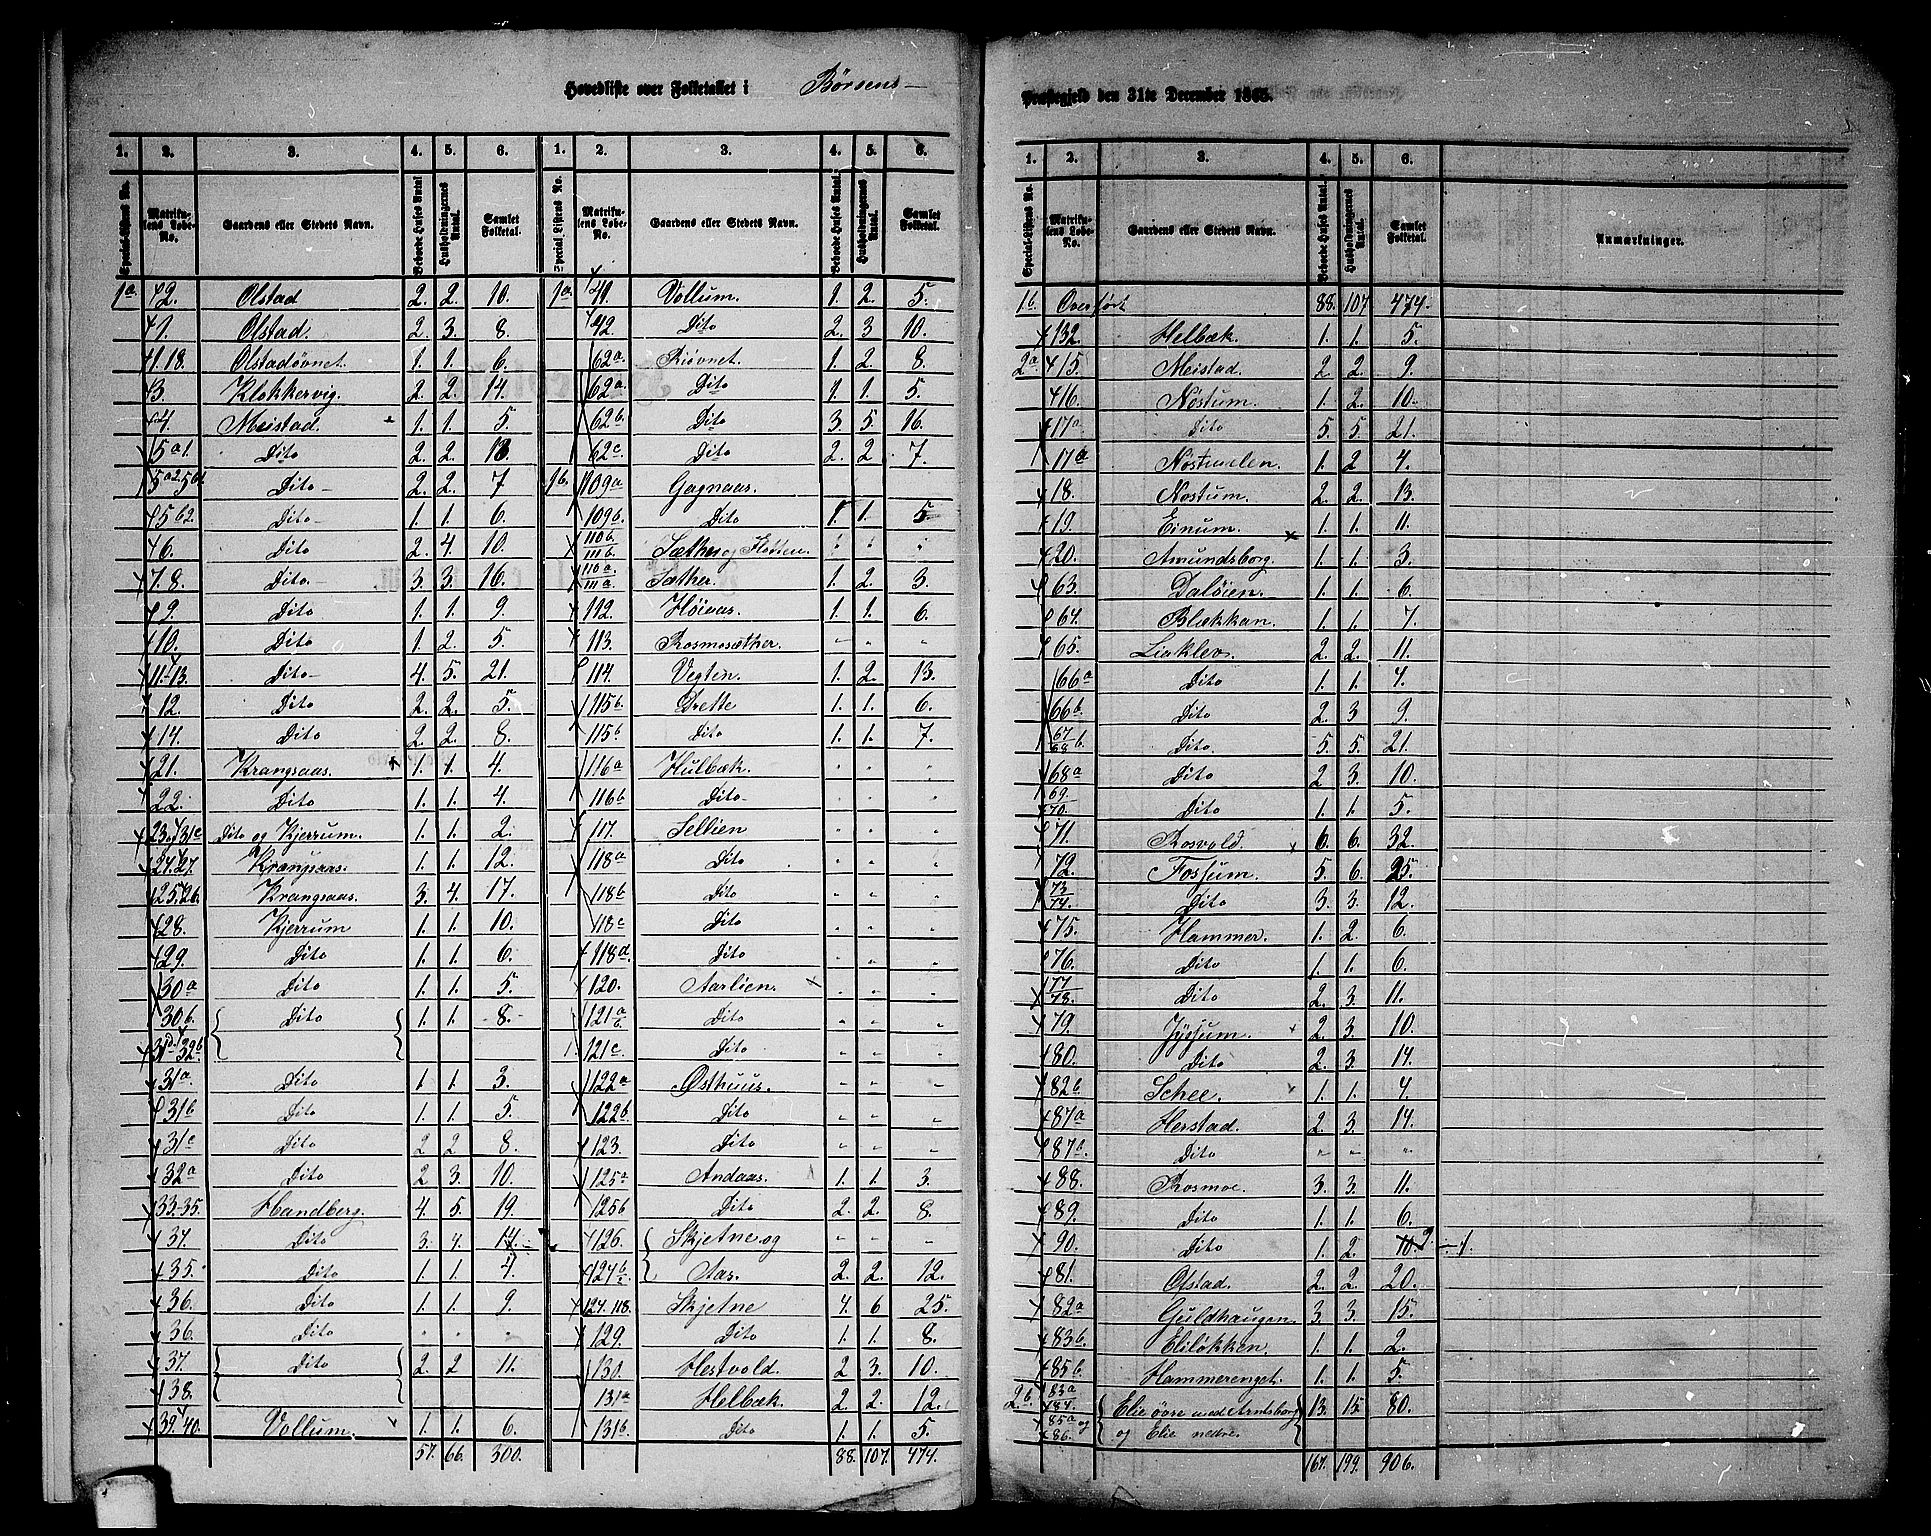 Hovedliste over Folketallet i Børsens
Præstegjeld den 31te December 1865.
1. 2. 3. 4. 5. 6. 1. 2. 3. 4. 5. 6.
Special-Listens No. Matrikulens Løbe-No. Gaardens eller Stedets Navn. Beboede Huses Antal. Husholdningernes Antal. Samlet Folketal. Special-Listens No. Matrikulens Løbe-No. Gaardens eller Stedets Navn. Beboede Huses Antal. Husholdningernes Antal. Samlet Folketal.
1a 2. Olstad 2. 2. 10.
1. Olstad. 2. 3. 8.
1.18. Olstadøvnet. 1. 1. 6.
3. Klokkervig. 2. 2. 14.
4. Meistad. 1. 1. 5.
5a1. Dito 2. 2.
Dito 2. 2. 7
5b2. Dito 1. 1. 6.
6. Dito 2. 4. 10.
7. 8. Dito 3. 3. 16.
9. Dito 1. 1. 9.
10. Dito 1. 2. 5.
11.13. Dito 4. 5. 21.
12. Dito 2. 2. 5.
14. Dito 2. 2. 8.
21. Krangsaas. 1. 1. 4.
22. Dito 1. 1. 4.
23. 31c Dito og Kjerrum. 1. 1. 2.
24.27. Krangsaas. 1. 1. 12.
25.26. Krangsaas. 3. 4. 17.
28. Kjerrum 1. 1. 10.
29. Dito 1. 1. 6.
30a Dito 1. 1. 5.
30b. Dito 1. 1. 8.
32b.
31a. Dito 1. 1. 3.
31b Dito 1. 1. 5.
31c Dito 2 2 8.
32a Dito 2 3. 10.
33.35. Handberg. 4. 5. 19.
37. Dito 3. 4. 14.
35. Dito 1. 1. 4.
36. Dito 1. 1. 9.
36. Dito " " "
37. Dito 2. 2 11.
38.
39.40. Vollum. 1. 1. 6.
57. 66. 300.
1a 41. Vollum. 1. 2. 5.
42. Dito 2. 3 10.
62a Riøvnet. 1. 2 8.
62a. Dito 1. 1. 5.
62b. Dito 3. 5. 16.
62c Dito 2. 2 7.
1b. 109a Gagnaas.
109b. Dito 1. 1. 5.
110b/111b. Sæther og Flotten. " " "
110a/111a. Sæther. 1. 2. 3.
112. Høiaas. 1. 1. 6.
113. Rosmosæther. " " "
114. Vegten. 1. 2. 13.
115b Grette 1. 1. 6.
115b Dito 1. 1. 7.
116a Hulbæk. " " "
116b Dito " " "
117. Sellien " " "
118a Dito " " "
118b Dito " " "
118c Dito " " "
118d Dito " " "
120. Aarlien. " " "
121a/b. Dito " " "
121c. Dito " " "
122a Østhuus. " " "
122b. Dito " " "
123. Dito " " "
125a Andaas. 1. 1. 3.
125b Dito 2. 2. 8.
126. Skjetne og " " "
124b Aas. 2. 2. 12.
Skjetne 4. 6 25.
129. Dito 1. 1. 8.
130. Hestvold 2 3. 10.
131a Helbæk. 2 2. 12.
131b. Dito 1. 1. 5.
88. 107. 474.
1. 2. 3. 4. 5. 6.
Special-Listens No. Matrikulens Løbe-No. Gaardens eller Stedets Navn. Beboede Huses Antal. Husholdningernes Antal. Samlet Folketal. Anmærkninger.
1b Overført 88. 107 474.
132. Helbæk. 1. 1. 5.
2a 15. Meistad. 2 2. 9.
16. Nostum. 1. 2. 10.
17a. Dito 5. 5. 21.
17a Nostualen. 1. 2 4.
18. Nostum. 2. 2. 13.
19. Einum. 1. 1. 11.
20. Amundsborg. 1. 1. 3.
63. Daløien. 1. 1. 6.
64. Blækkan. 1. 1. 7.
65. Liaklev. 2. 2. 11.
66a Dito 1. 1. 4.
66b. Dito 2. 3 9.
67/68b. Dito. 5. 5. 21.
68a Dito 2. 3. 10.
69/70. Dito. 1. 1. 5.
71. Rosvold. 6. 6. 32.
72. Fossum. 5. 6. 25.
73/74. Dito 3. 3. 12.
75. Hammer. 1. 2. 6.
76. Dito 1. 1. 6.
77/78. Dito 2. 3. 11.
79. Jyssum. 2. 3. 10.
80. Dito 2. 3. 14.
82b. Schee. 1. 1. 4.
87a Herstad. 2 3. 14.
87b. Dito " " "
88. Rosmoe. 3. 3. 11.
89. Dito 1. 1. 6.
90. Dito 1. 2. 10. 9. ÷ 1.
81. Olstad. 2. 2. 20.
82a Guldhaugen. 3. 3. 15.
83b. Eliløkken. 1. 1. 2.
85b. Hammerenget. 1. 1. 5.
2b. 83a/84. Elie øvre med Arntsborg 13. 15. 80.
85a og 86. og Elie nedre.
167. 199. 906.